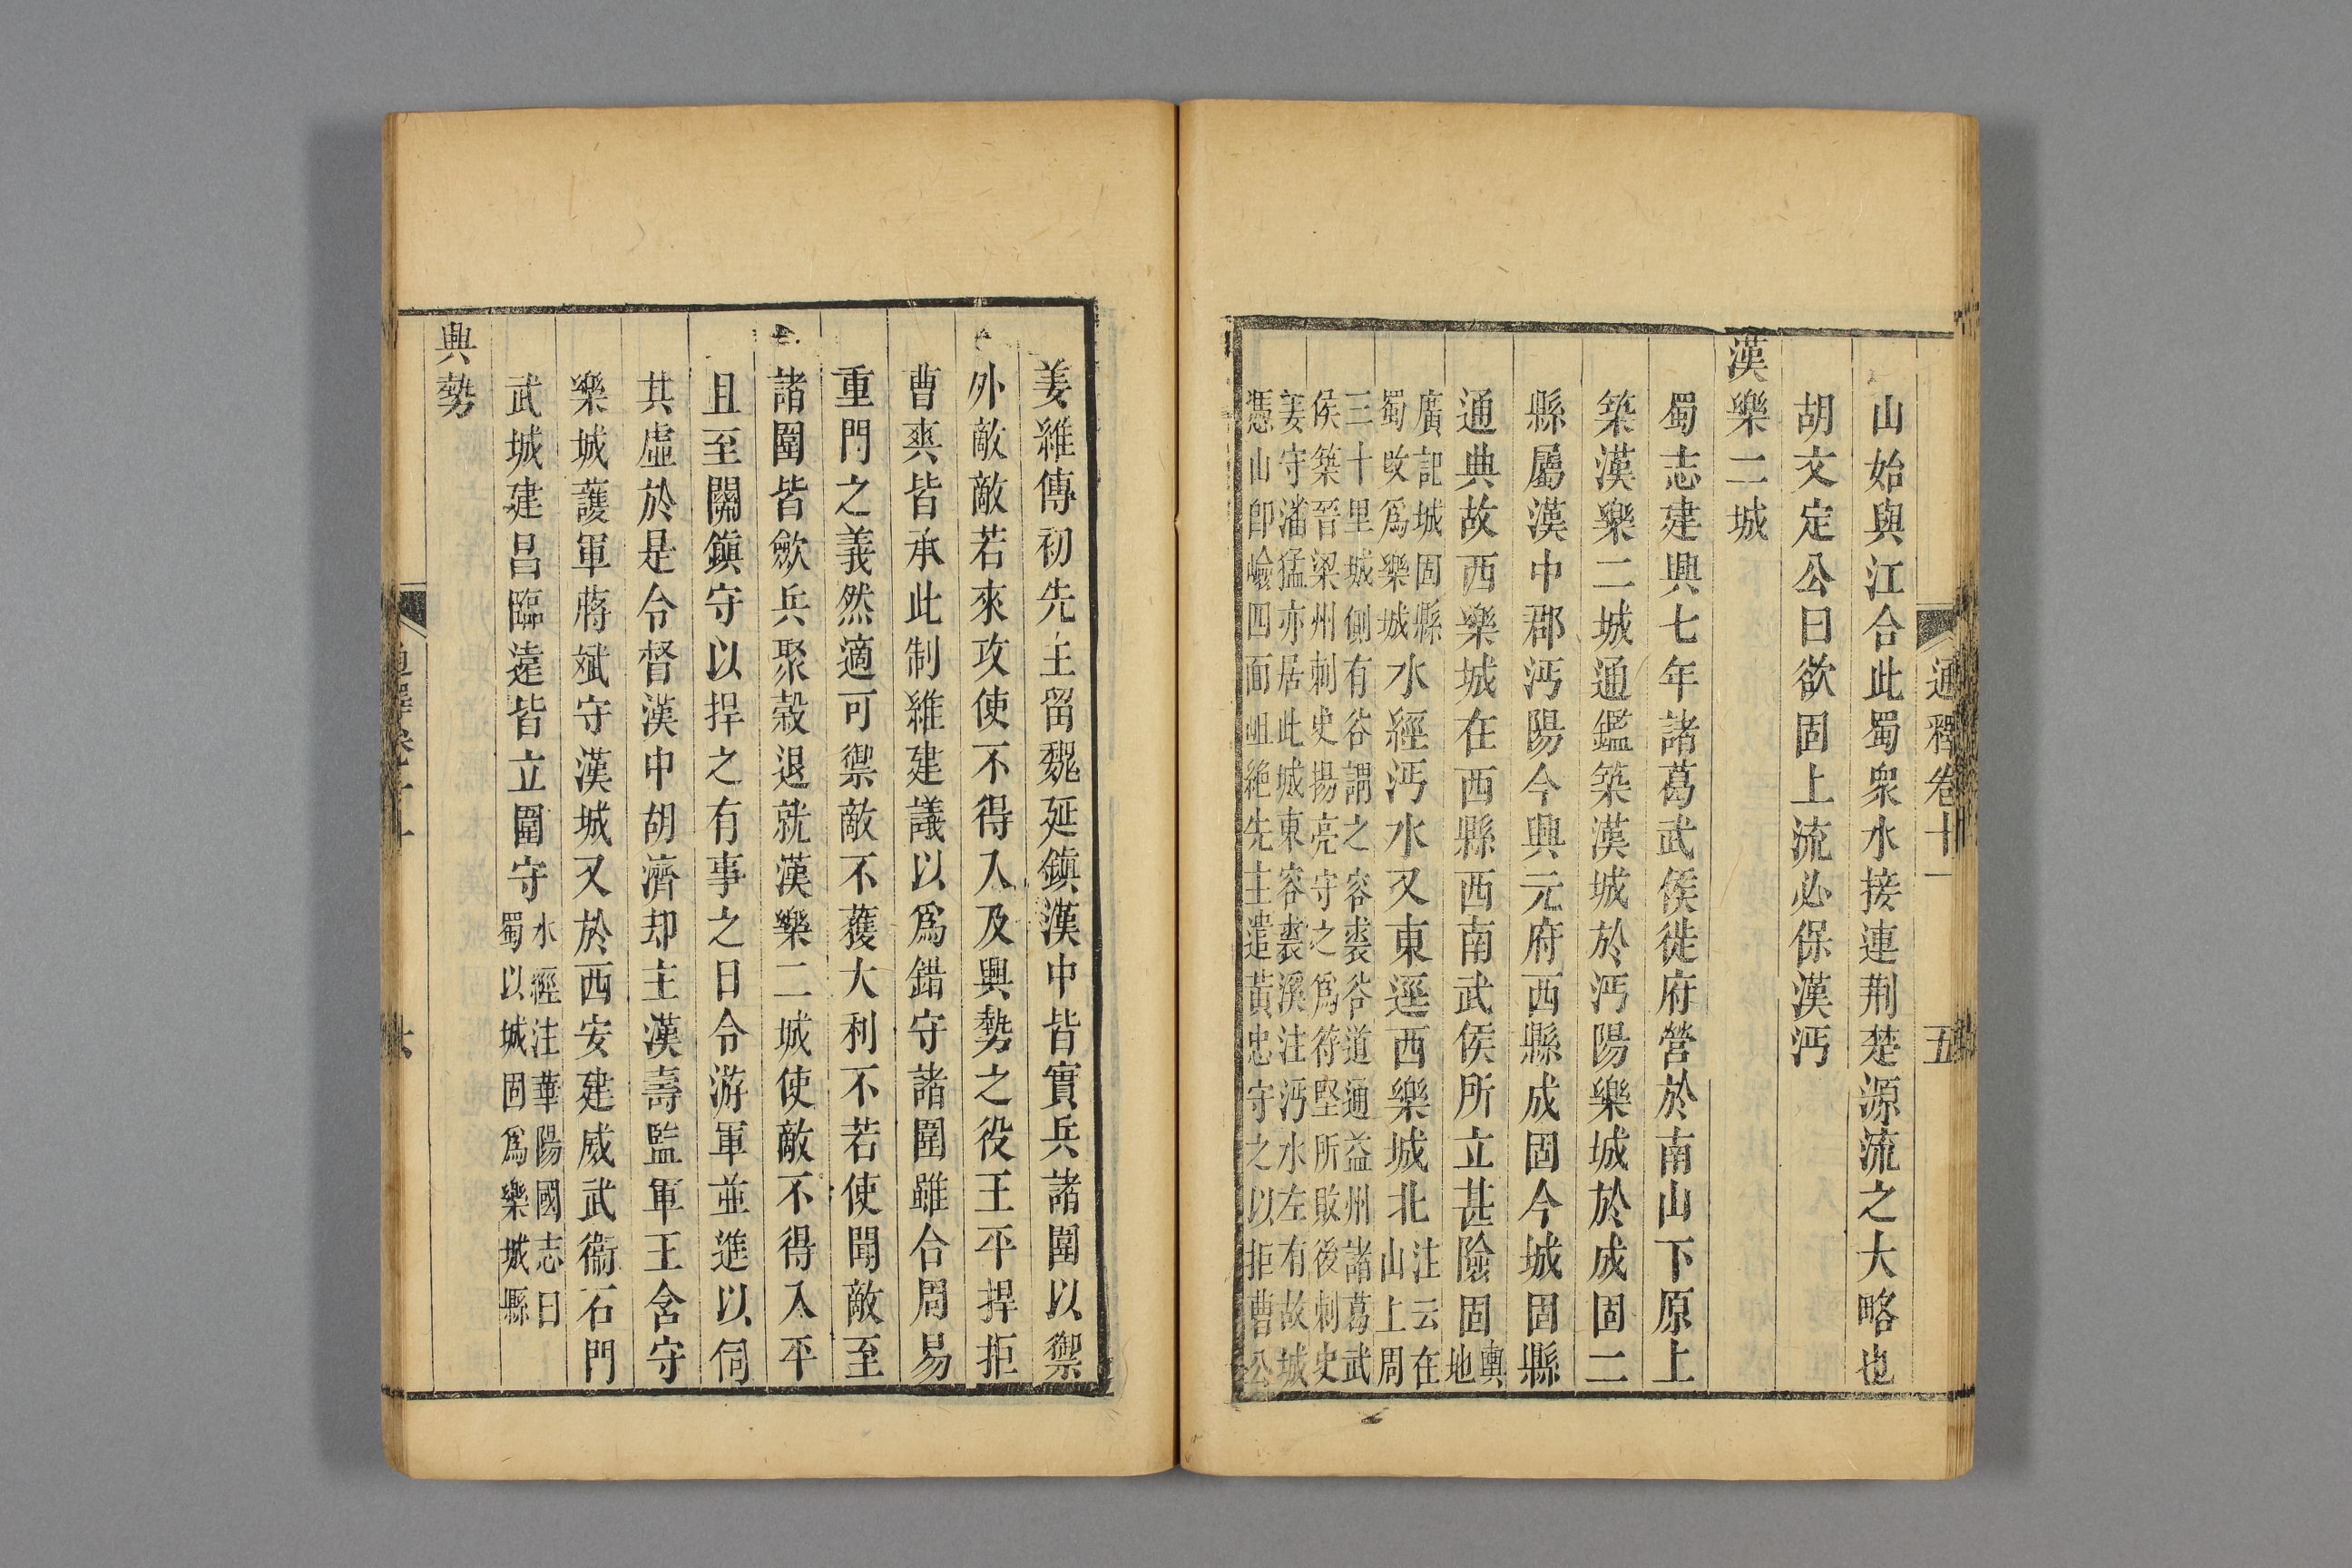 通釋卷十一 五
山始與江合此蜀衆水接連荆楚源流之大略也
胡文定公曰欲固上流必保漢沔
漢樂二城
蜀志建興七年諸葛武侯徙府營於南山下原上
築漢樂二城通鑑築漢城於沔陽樂城於成固二
縣屬漢中郡沔陽今興元府西縣成固今城固縣
通典故西樂城在西縣西南武侯所立甚險固輿
地
廣記城固縣
蜀改爲樂城水經沔水又東逕西樂城北注云在
山上周
三十里城側有谷謂之容裘谷道通益州諸葛武
侯築晉梁州刺史楊亮守之爲符堅所敗後刺史
姜守潘猛亦居此城東容裘溪注沔水左有故城
憑山卽嶮四面岨絶先主遣黃忠守之以拒曹公
姜維傳初先主留魏延鎮漢中皆實兵諸圍以禦
外敵敵若來攻使不得入及興勢之役王平捍拒
曹爽皆承此制維建議以爲錯守諸圍雖合周易
重門之義然適可禦敵不獲大利不若使聞敵至
諸圍皆歛兵聚穀退就漢樂二城使敵不得入平
且至關鎮守以捍之有事之日令游軍並進以伺
其虛於是令督漢中胡濟却主漢壽監軍王含守
樂城護軍蔣斌守漢城又於西安建威武衞石門
武城建昌臨遠皆立圍守水經注華陽國志曰
蜀以城固爲樂城縣
興勢
通釋卷十一 六